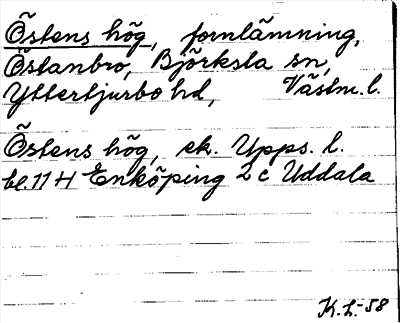 Östens hög, fornlämning,
Östanbro, Björksta sn,
Yttertjurbo hd, Västm. l.
Östens hög, ek. Upps. l.
bl. 11 H Enköping 2 c Uddala
K.L.-58